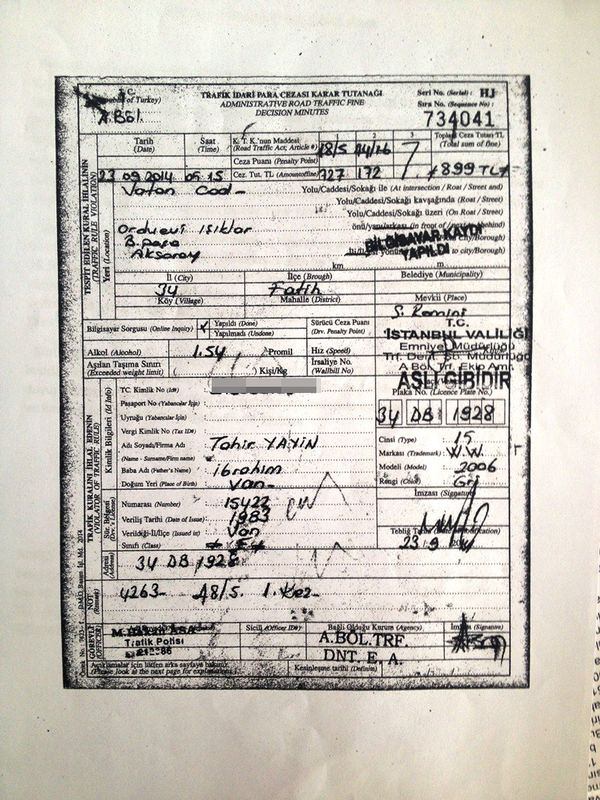 T.C.
(Republic of Turkey)
A Böl.
TRAFİK İDARİ PARA CEZASI KARAR TUTANAĞI
ADMINISTRATIVE ROAD TRAFFIC FINE
DECISION MINUTES
Seri No. (Serial) : HJ
Sıra No. (Sequence No) :
734041
Tarih (Date)
Saat (Time)
K. T. K.'nun Maddesi (Road Traffic Act, Article #)
1 2 3
48/5 44/2b
Toplam Ceza Tutarı TL (Total sum of fine)
Ceza Puanı (Penalty Point)
23 09 2014 05:15
Cez. Tut. TL (Amountoffine)
727 172
899 TL
TESPİT EDİLEN KURAL İHLALİNİN
(TRAFFIC RULE VIOLATION)
Yeri (Location)
Vatan Cad-
Yolu/Caddesi/Sokağı ile (At intersection / Roat / Street and)
Yolu/Caddesi/Sokağı kavşağında (Roat / Street)
Yolu/Caddesi/Sokağı üzeri (On Roat / Street)
Orduevi Işıklar
Aksaray
BİLGİSAYAR KAYDI
YAPILDI
km m.
İl (City)
İlçe (Brough)
Belediye (Municipality)
34 Fatih
Köy (Village)
Mahalle (District)
Mevkii (Place)
Bilgisayar Sorgusu (Online Inquiry)
Yapıldı (Done)
Yapılmadı (Undone)
Sürücü Ceza Puanı (Drv. Penalty Point)
T.C.
İSTANBUL VALİLİĞİ
Emniyet Müdürlüğü
Trf. Dent. Şb. Müdürlüğü
A Böl. Trf. Ekip Amr.
ASLI GİBİDİR
Alkol (Alcohol) 1.54 Promil
Hız (Speed)
Aşılan Taşıma Sınırı (Exceeded weight limit)
Kişi/Kg
İrsaliye No. (Wallbill No)
TRAFİK KURALINI İHLAL EDENİN
(VIOLATOR OF TRAFFIC RULE)
Kimlik Bilgileri (Id Info)
TC. Kimlik No (Id#)
Plaka No. (Licence Plate No.)
Pasaport No (Yabancılar İçin)
34 DB 1928
Uyruğu (Yabancılar İçin)
Vergi Kimlik No (Tax ID#)
Cinsi (Type) : 15
Adı Soyadı/Firma Adı
(Name - Surname/Firm name)
Tahir YAYIN
Markası (Trademark) : W.W.
Baba Adı (Father's Name)
ibrahim
Modeli (Model) 2006
Doğum Yeri (Place of Birth)
Van-
Rengi (Color) Gri
Sür. Belgesi (Drv. Licence)
Numarası (Number) 15422
İmzası (Signature)
Veriliş Tarihi (Date of Issue) 1983
Verildiği-İl/İlçe (Issued in) Van
Tebliğ Tarihi
23.9
Sınıfı (Class) E
Adresi (Address)
34 DB 1928
NOT
4263- 48/5. 1. Kez-
GÖREVLİ
(OFFICER)
Trafik Polisi
Sicili (Officer ID#)
Bağlı Olduğu Kurum (Agency)
İmzası (Signature)
A.BÖL.TRF.
DNT E. A.
Açıklamalar için lütfen arka sayfaya bakınız.
(Please look at the next page for explanations)
Kesinleşme tarihi